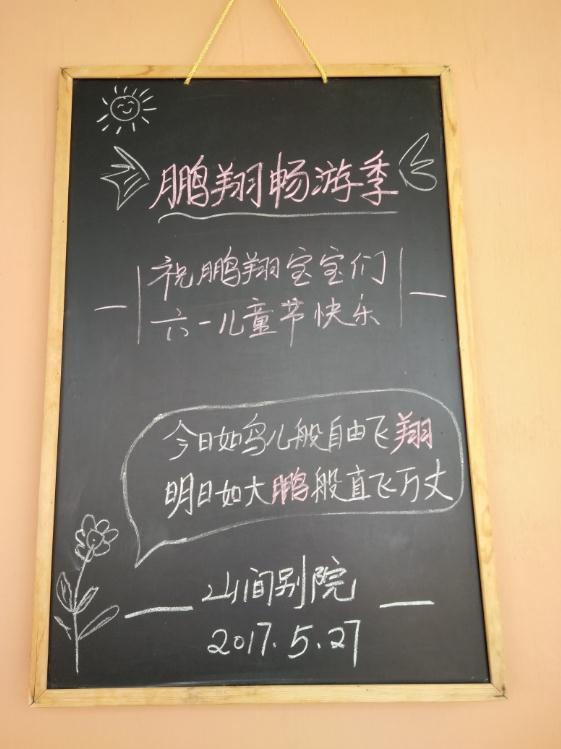 鹏翔畅游季
祝鹏翔宝宝们
六一儿童节快乐
今日如鸟儿般自由飞翔
明日如大鹏般直飞万丈
山间别院
2017.5.27